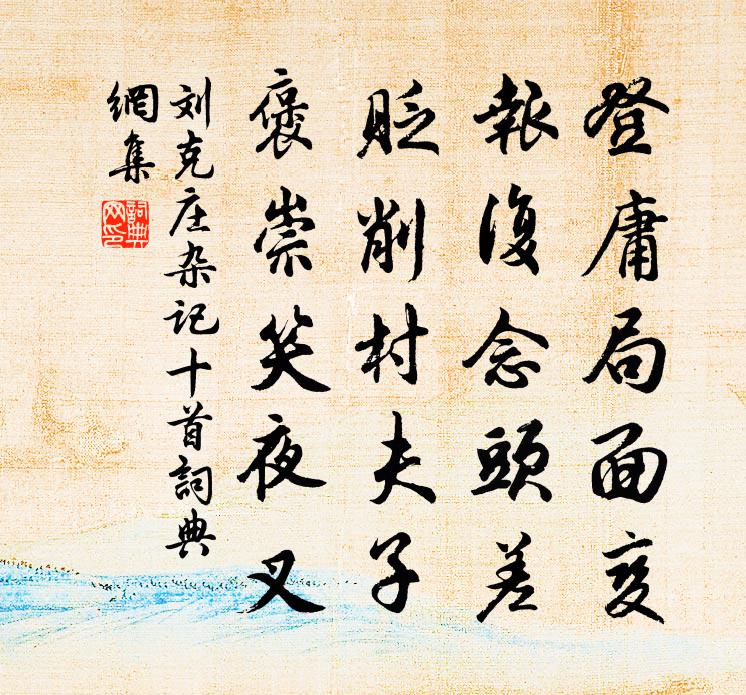 登庸局面变
報復念頭差
貶削村夫子
褒崇笑夜叉
刘克庄杂记十首詞典
網集
詞典
网印